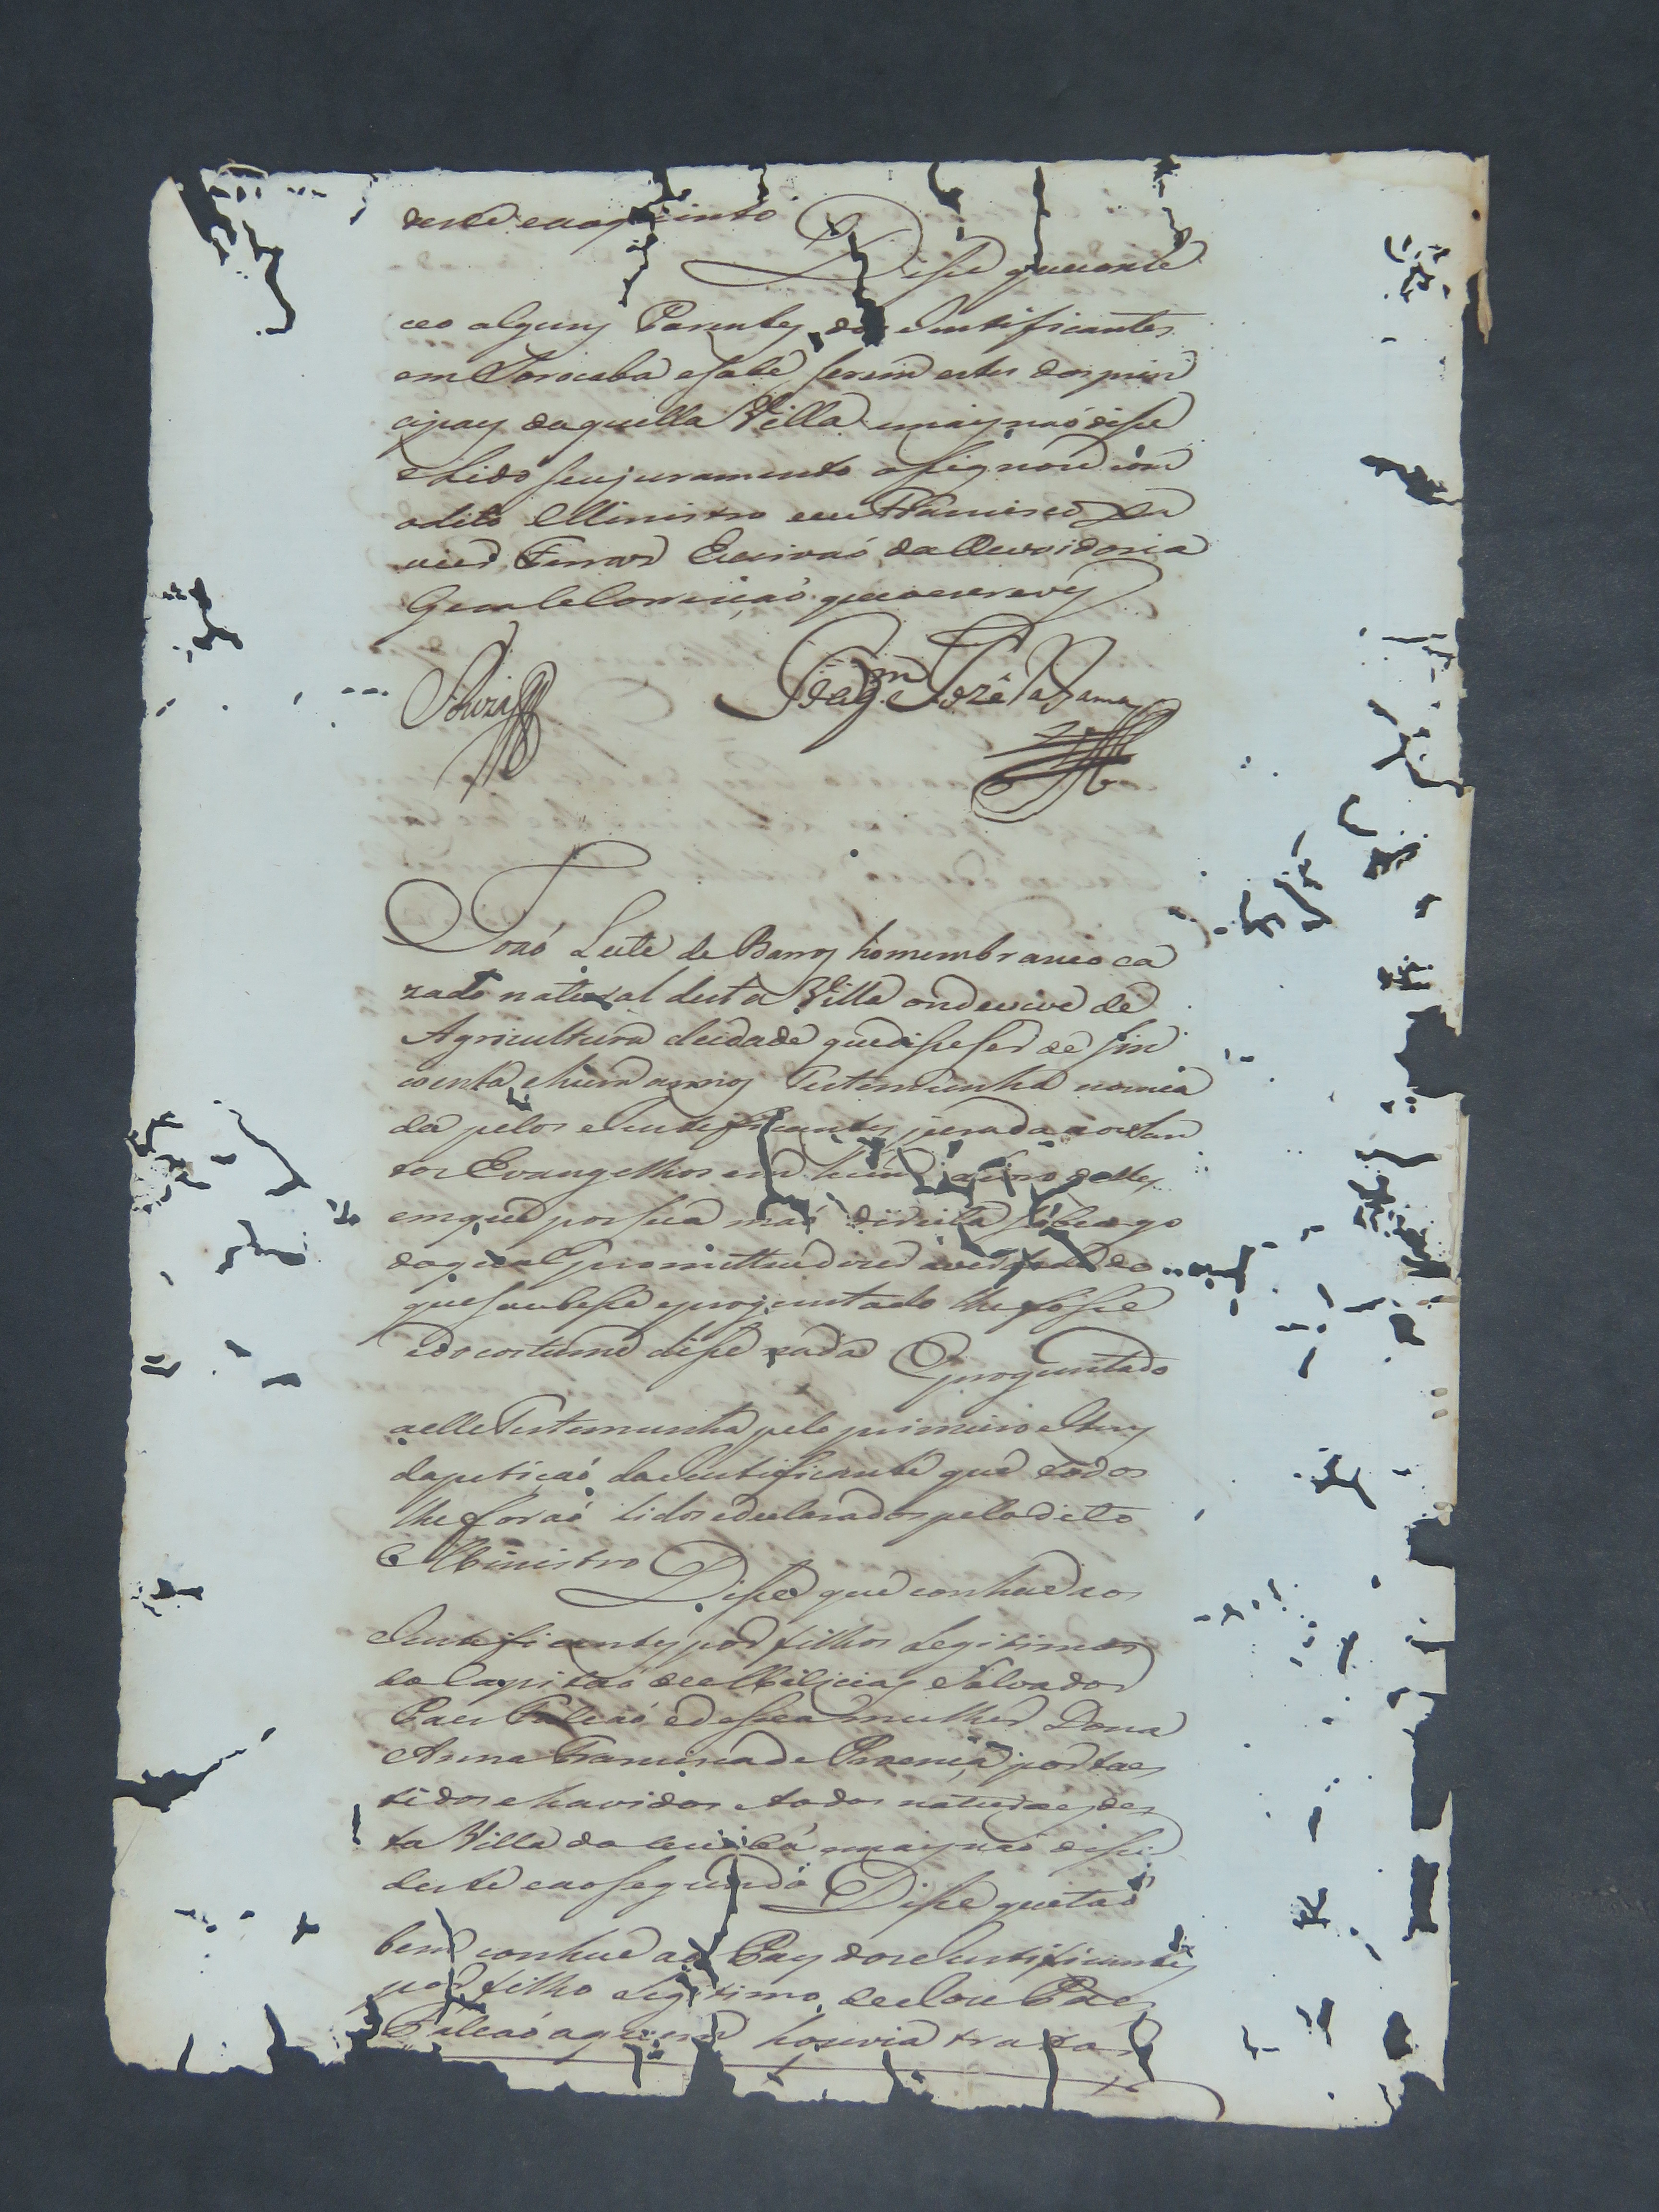 deste e ao quinto
Disse que conhe
ceo alguns Parentes dos Justificantes
em Sorocaba e sabe serem estes dos prin
cipaes daquella Villa e mais naó disse
e Lido seu juramento asignou com
o dito Ministro e eu Francisco Xa
vier Ferros Escrivaó da Ouvidoria
Geral e Correiçaó que o escrevy
Souza
Joaqm Jozé
Joaó Leite de Barros homem branco ca
zado natural desta Villa onde vive de
Agricultura de idade que disse ser de sin
coenta e hum annos Testemunha nomia
da pelos Justificantes jurada aos San
tos Evangelhos em hum Livro delles
em que pos sua maó direita
do qual prometteu dizer a verdade do
que soubesse e proguntado lhe fosse
e do costume disse nada E proguntado
a elle Testemunha pelo primeiro Itens
da petiçaó da Justificante que todos
lhe foraó lidos e declarados pelo dito
Ministro Disse que conhece aos
Justificantes por filhos Legitimos
do Capitaó de Milicias Salvador
Paes Falcaó e de sua mulher Dona
Anna Francisca de por taes
tidos e havidos e todos naturaes des
ta Villa do Cuiabá e mais naó disse
deste e ao segundo Disse que taó
bem conhece ao Pay dos Justificantes
por filho Legitimo de Jose Paes
Falcaó a quem houvia tratar